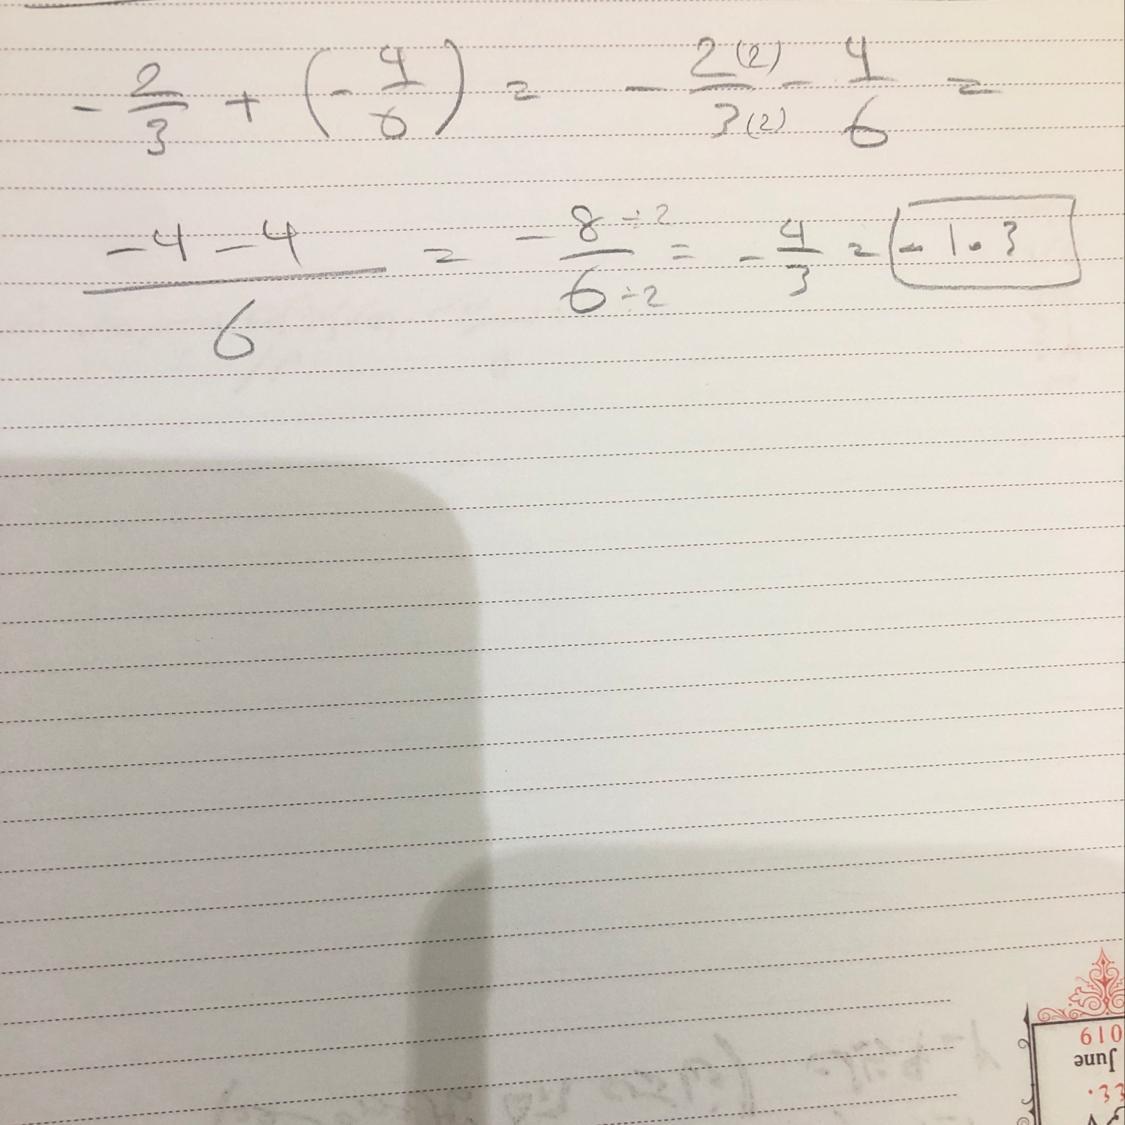 - 2/3 + (- 4/6) = - 2(2)/3(2) - 4/6 =
-4-4/6 = - 8÷2/6÷2 = - 4/3 = -1.3
019
June